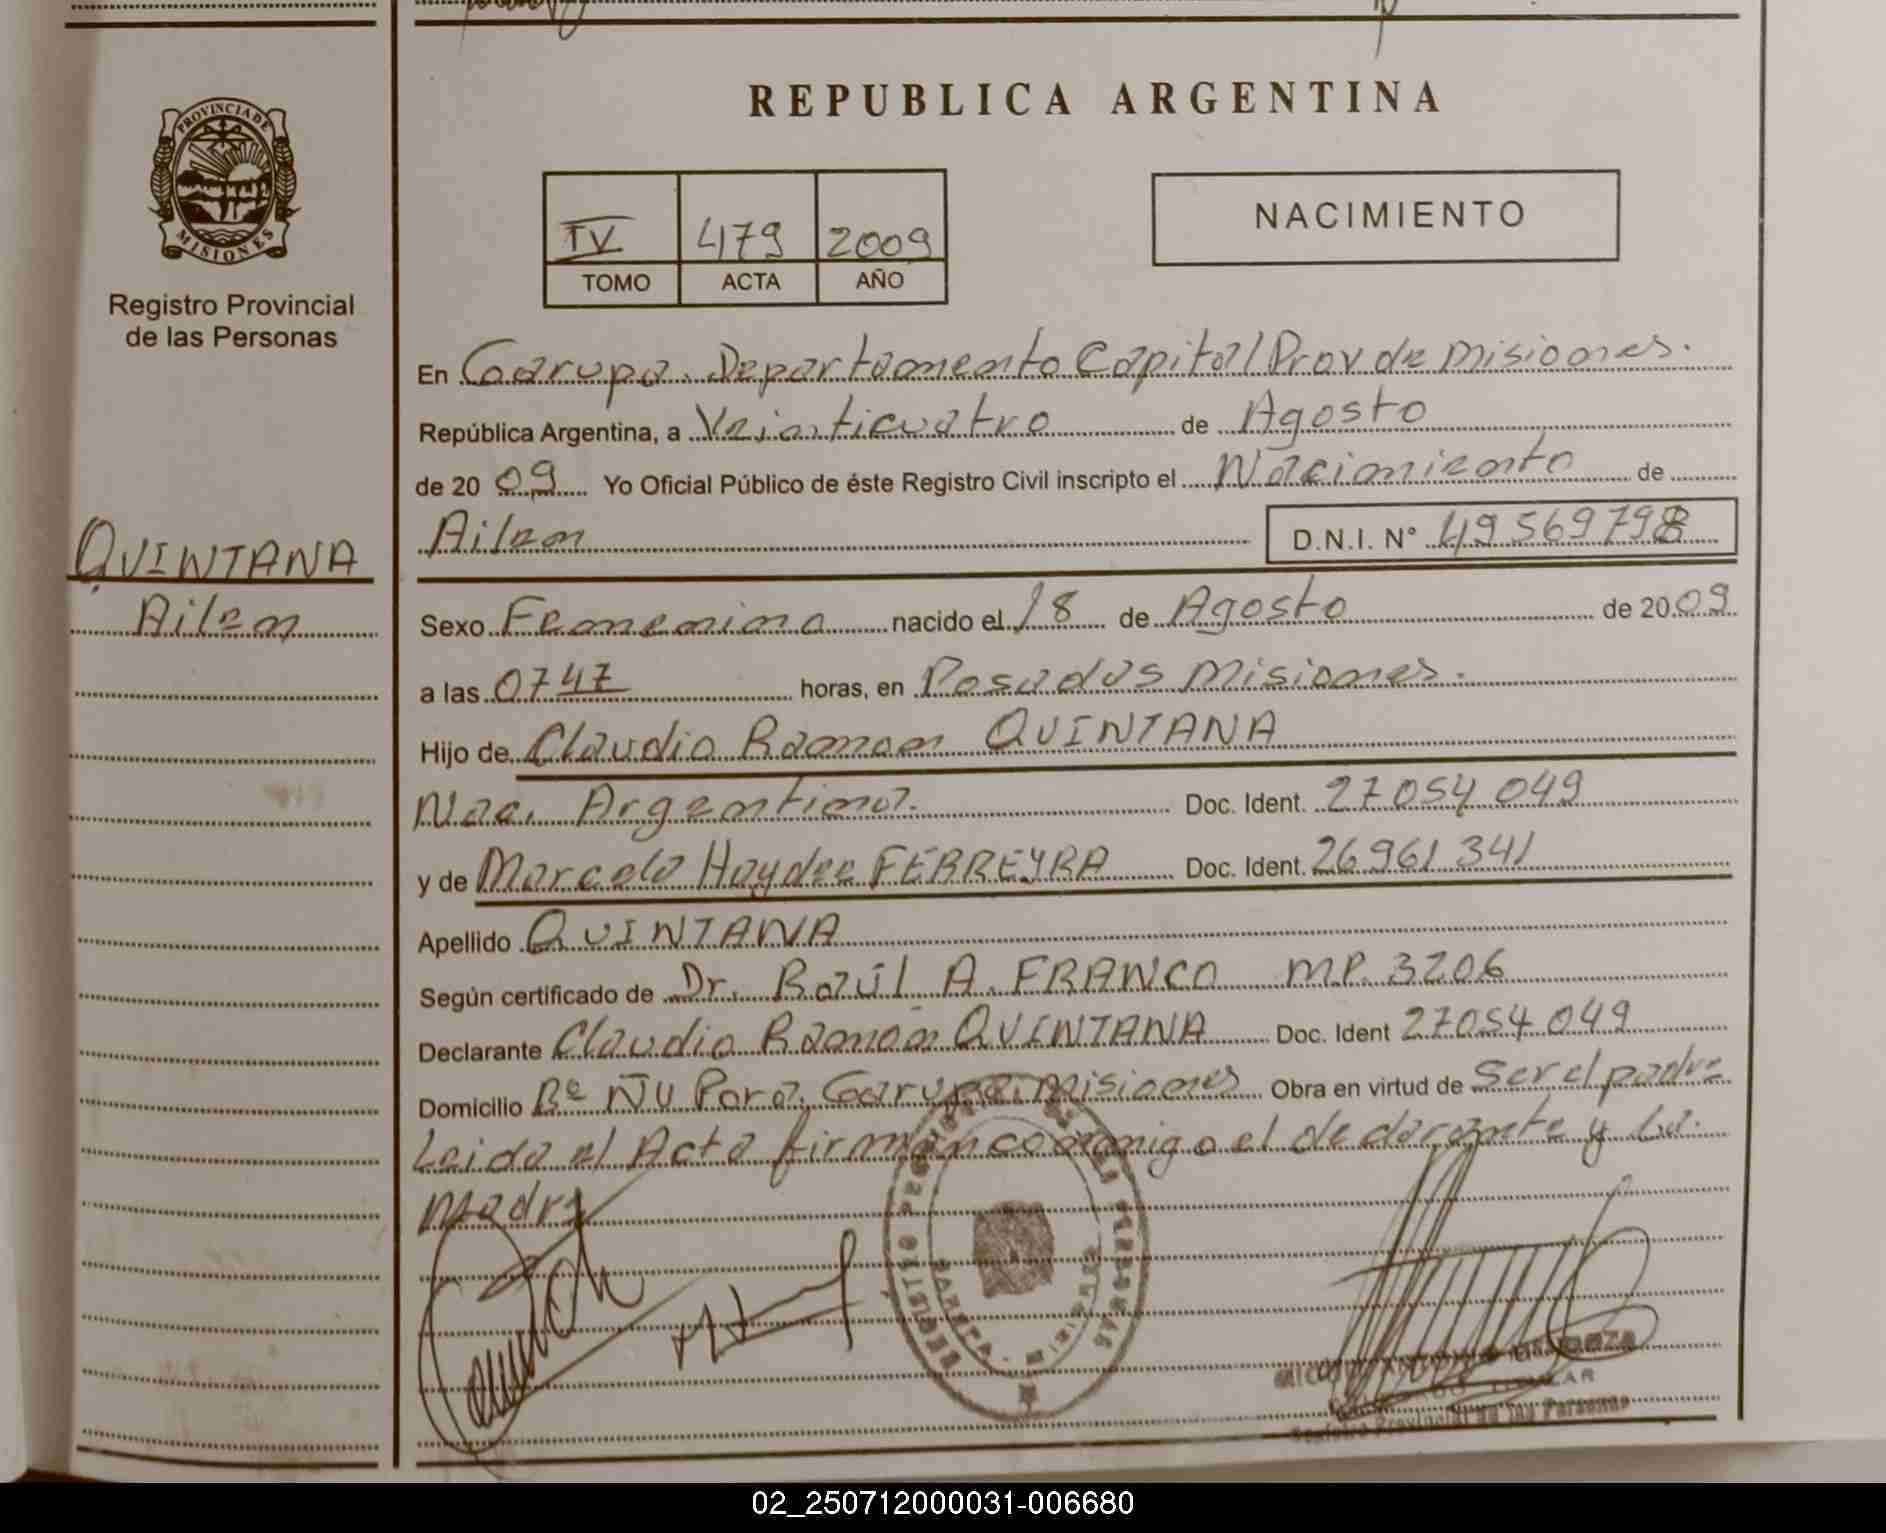 REPUBLICA ARGENTINA
PROVINCIA DE
MISIONES
Registro Provincial
de las Personas
IV 479 2009
TOMO ACTA AÑO
NACIMIENTO
En Garupa. Departamento Capital Prov de Misiones.
República Argentina, a Veinticuatro de Agosto
de 20 09 Yo Oficial Público de éste Registro Civil inscripto el Nacimiento de
QUINTANA
Ailen
Ailen D.N.I. N° 49569798
Sexo Femenino nacido el 18 de Agosto de 2009
a las 0747 horas, en Posadas Misiones.
Hijo de Claudio Ramon QUINTANA
Nac. Argentina. Doc. Ident. 27054049
y de Marcela Haydee FERREYRA Doc. Ident. 26961341
Apellido QUINTANA
Según certificado de Dr. Raúl A. FRANCO M.P. 3206
Declarante Claudio Ramon QUINTANA Doc. Ident 27054049
Domicilio Bº ÑU Pora. Garupa. Misiones Obra en virtud de Ser el padre
Leida el Acta firman conmigo el declarante y la.
Madre
Registro Provincial de las Personas
02_250712000031-006680